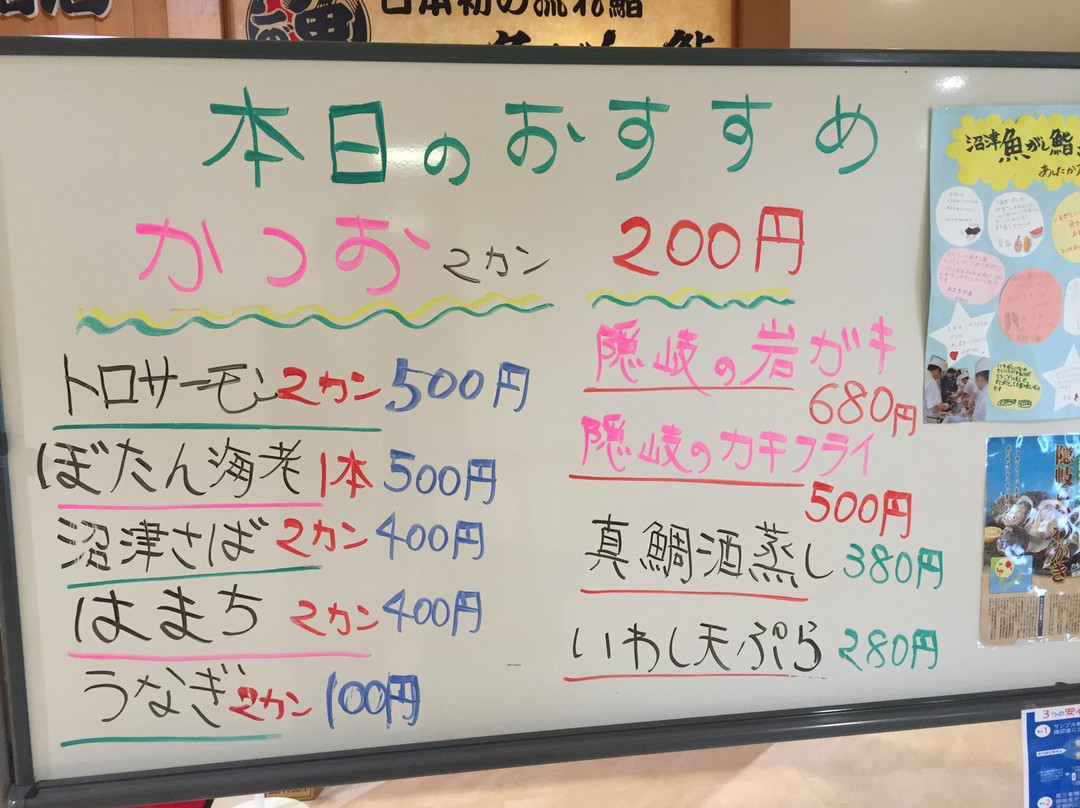 日本初の流れ鮨
本日のおすすめ
かつお 2カン 200円
トロサーモン 2カン 500円
ぼたん海老 1本 500円
沼津さば 2カン 400円
はまち 2カン 400円
うなぎ 2カン 100円
隠岐の岩ガキ
680円
隠岐のカキフライ
500円
真鯛酒蒸し 380円
いわし天ぷら 280円
沼津魚がし鮨
隠岐
3つの安